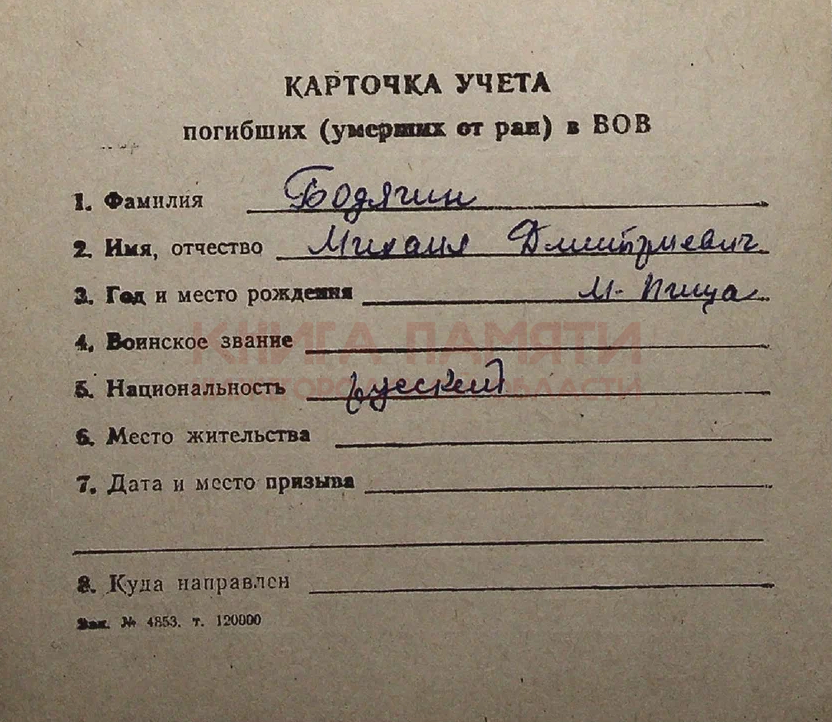 КАРТОЧКА УЧЕТА
погибших (умерших от ран) в ВОВ
1. Фамилия Бодягин
2. Имя, отчество Михаил Дмитриевич
3. Год и место рождения М-Пица
4. Воинское звание
КНИГА ПАМЯТИ
5. Национальность русский
ОБЛАСТИ
6. Место жительства
7. Дата и место призыва
8. Куда направлен
Зак. № 4853. т. 120000